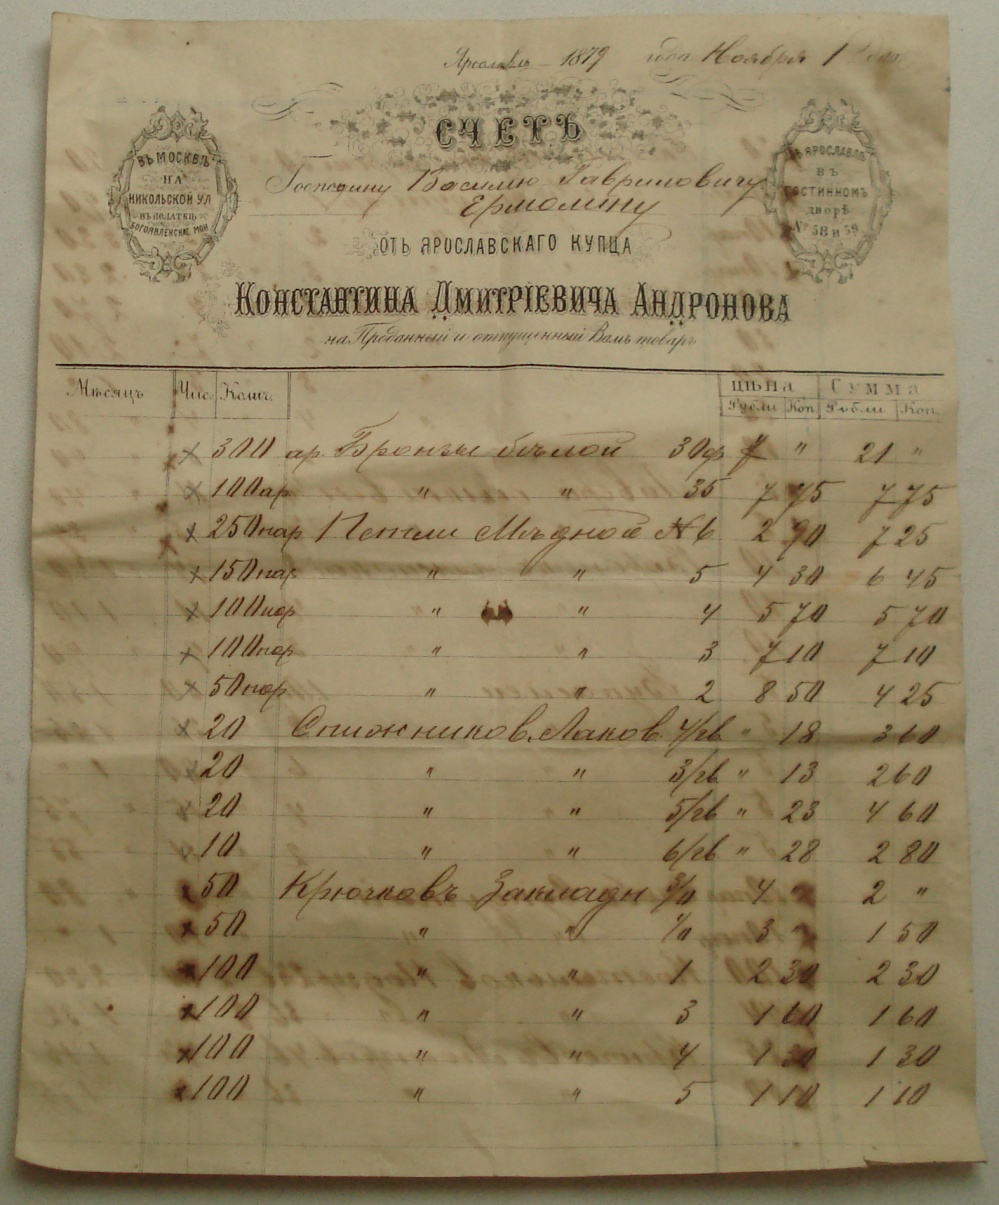 Ярославль 1879 года Ноября 1 дня
СЧЕТЪ
ВЪ МОСКВѢ
НА
НИКОЛЬСКОЙ УЛ
БОГОЯВЛЕНСКАГ. МОН
ВЪ ЯРОСЛАВЛѢ
ВЪ
ГОСТИННОМЪ
ДВОРѢ
№ 58 и 59
Господину Василию Гавриловичу
Ермолину
ОТЪ ЯРОСЛАВСКАГО КУПЦА
КОНСТАНТИНА ДМИТРІЕВИЧА АНДРОНОВА
на Проданный и отпущенный Вамъ товаръ
Мѣсяцъ Чис. Колич. ЦѢНА СУММА
Рубли Коп Рубли Коп.
× 300 ар. Бронзы бѣлой 30ф 7 " 21 "
× 100 ар " " 35 7 75 7 75
× 250 пар Петли Мѣдной № 6 2 90 7 25
× 150 пар " " 5 4 30 6 45
× 100 пар " " 4 5 70 5 70
× 100 пар " " 3 7 10 7 10
× 50 пар " " 2 8 50 4 25
× 20 4/гв " 18 3 60
× 20 " " 3/гв " 13 2 60
× 20 " " 5/гв " 23 4 60
× 10 " " 6/гв " 28 2 80
× 50 Крючковъ Закладн 2/0 4 " 2 "
× 50 " " 1/0 3 " 1 50
× 100 " " 1 2 30 2 30
× 100 " " 3 1 60 1 60
× 100 " " 4 1 30 1 30
× 100 " " 5 1 10 1 10